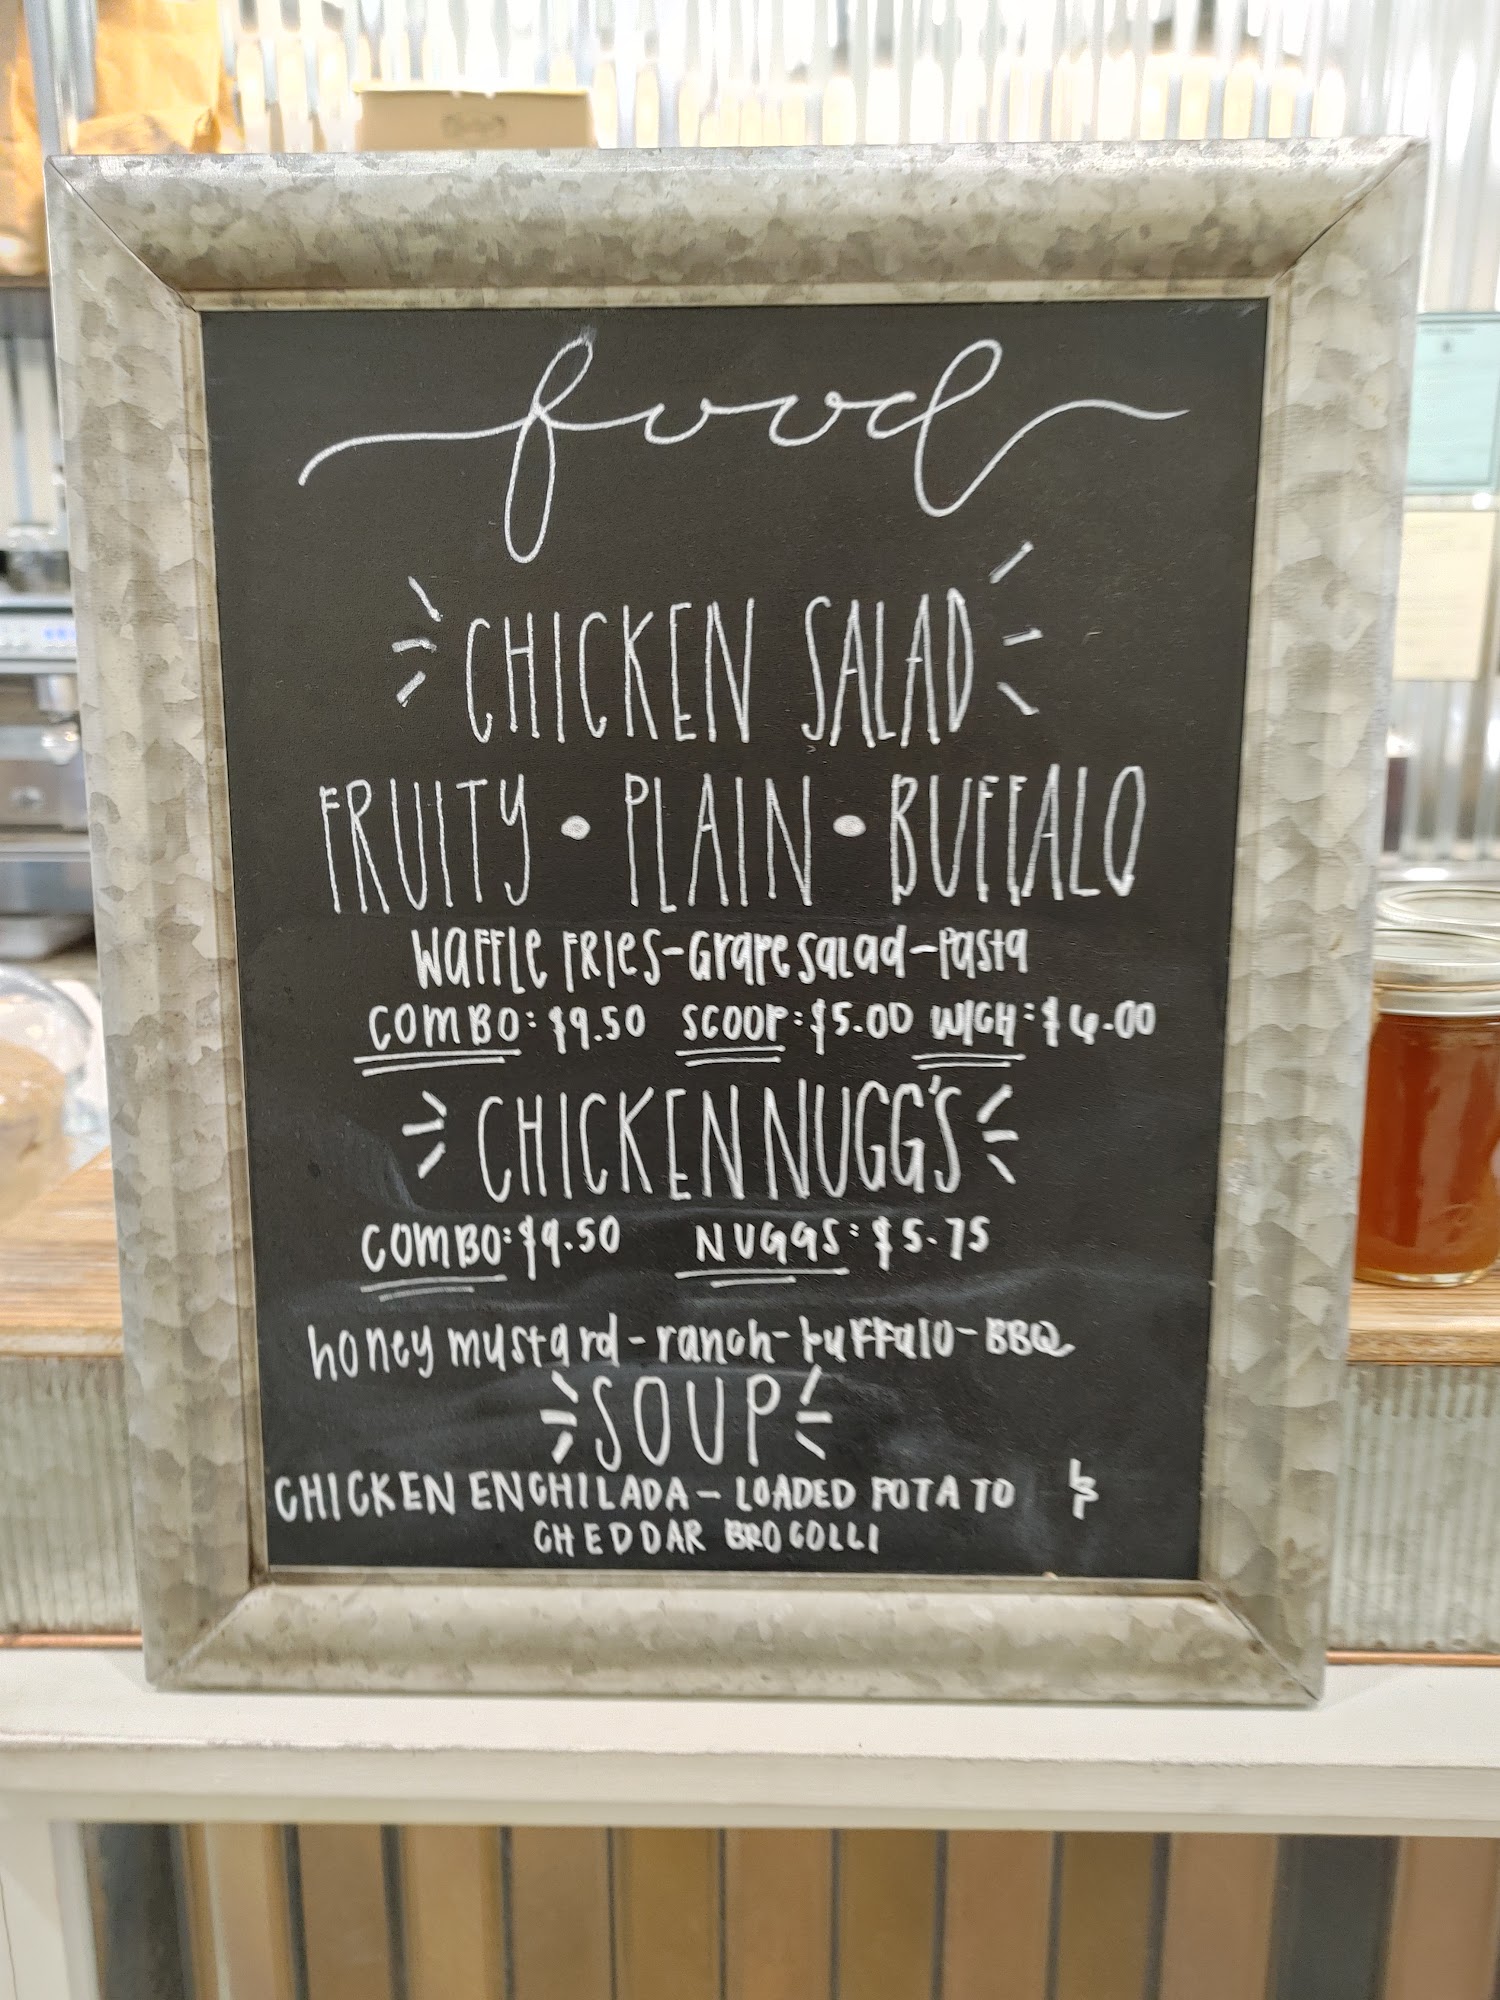 food
CHICKEN SALAD
FRUITY • PLAIN • BUFFALO
WAFFLE FRIES-Grape salad-Pasta
COMBO: $9.50 SCOOP: $5.00 WICH: $6.00
CHICKEN NUGG'S
COMBO: $9.50 NUGGS: $5.75
honey mustard-ranch-buffalo-BBQ
SOUP
CHICKEN ENCHILADA-LOADED POTATO
CHEDDAR BROCOLLI